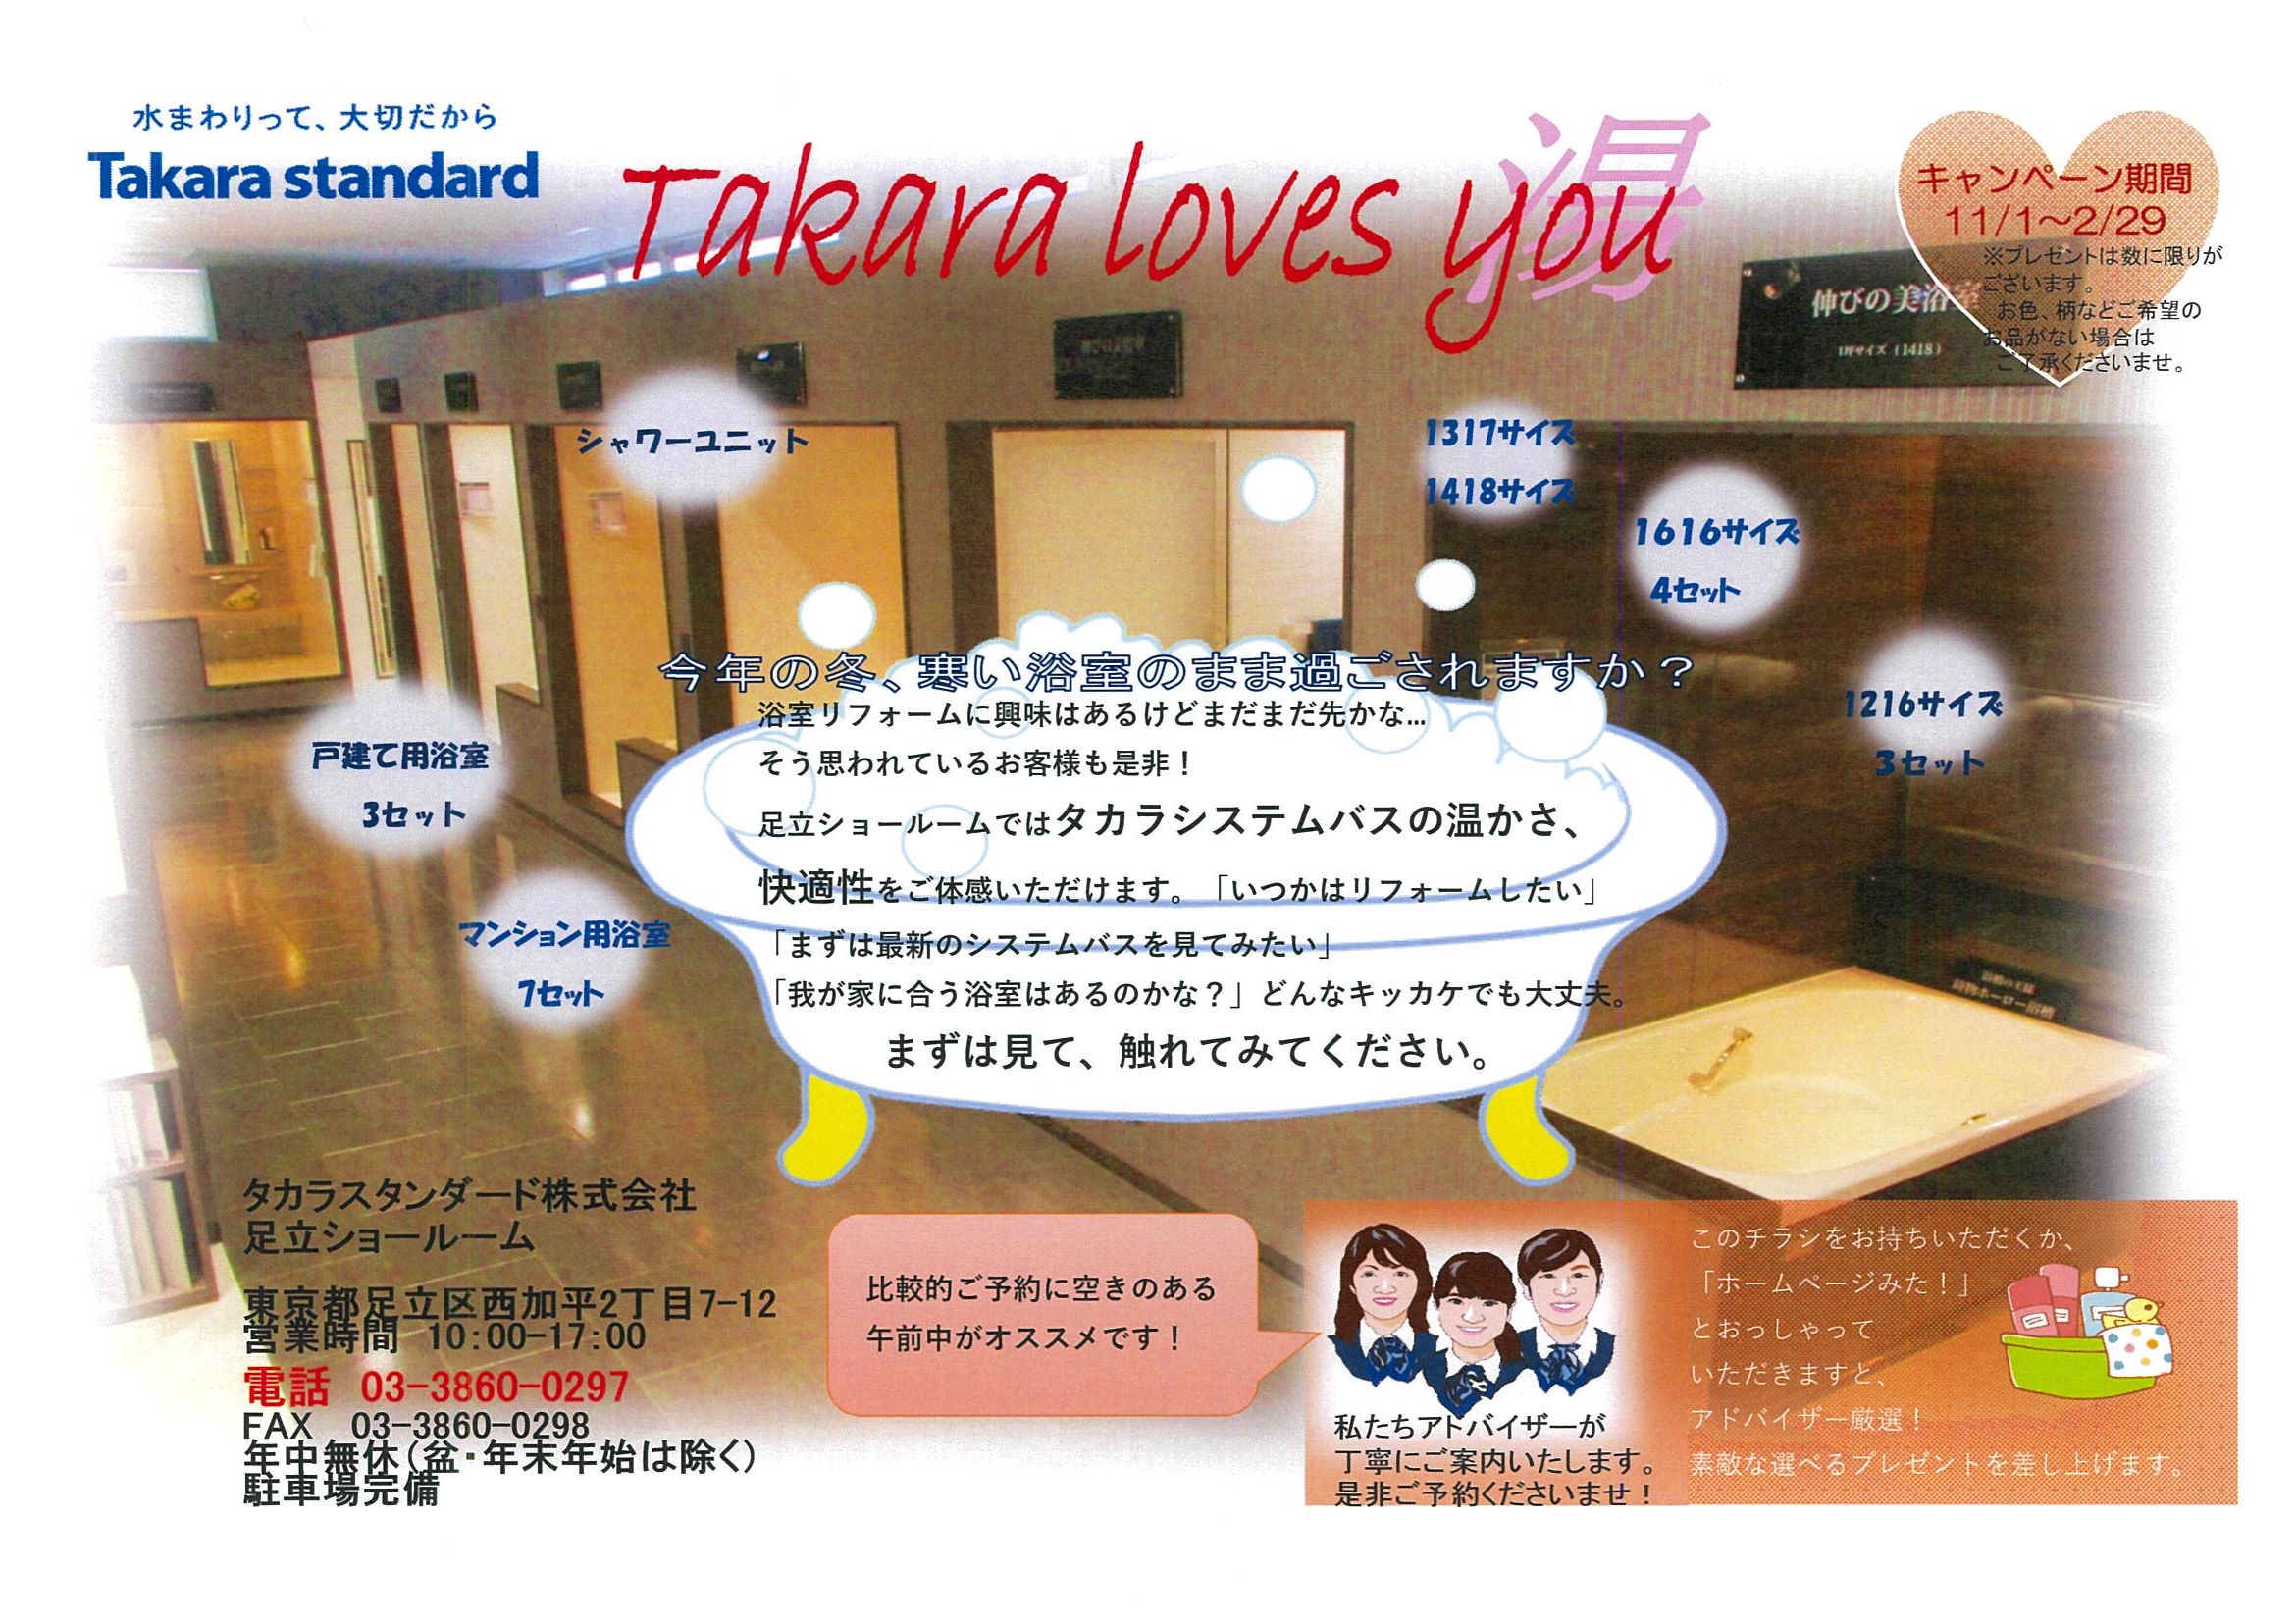 水まわりって、大切だから
Takara standard
Takara loves you
湯
キャンペーン期間
11/1～2/29
※プレゼントは数に限りが
ございます。
お色、柄などご希望の
お品がない場合は
ご了承くださいませ。
伸びの美浴室
(1418)
シャワーユニット
1317サイズ
1418サイズ
1616サイズ
4セット
1216サイズ
3セット
戸建て用浴室
3セット
マンション用浴室
7セット
今年の冬、寒い浴室のまま過ごされますか？
浴室リフォームに興味はあるけどまだまだ先かな…
そう思われているお客様も是非！
足立ショールームではタカラシステムバスの温かさ、
快適性をご体感いただけます。「いつかはリフォームしたい」
「まずは最新のシステムバスを見てみたい」
「我が家に合う浴室はあるのかな？」どんなキッカケでも大丈夫。
まずは見て、触れてみてください。
鋳物ホーロー浴槽
タカラスタンダード株式会社
足立ショールーム
東京都足立区西加平2丁目7-12
営業時間 10:00-17:00
電話 03-3860-0297
FAX 03-3860-0298
年中無休（盆・年末年始は除く）
駐車場完備
比較的ご予約に空きのある
午前中がオススメです！
私たちアドバイザーが
丁寧にご案内いたします。
是非ご予約くださいませ！
このチラシをお持ちいただくか、
「ホームページみた！」
とおっしゃって
いただきますと、
アドバイザー厳選！
素敵な選べるプレゼントを差し上げます。